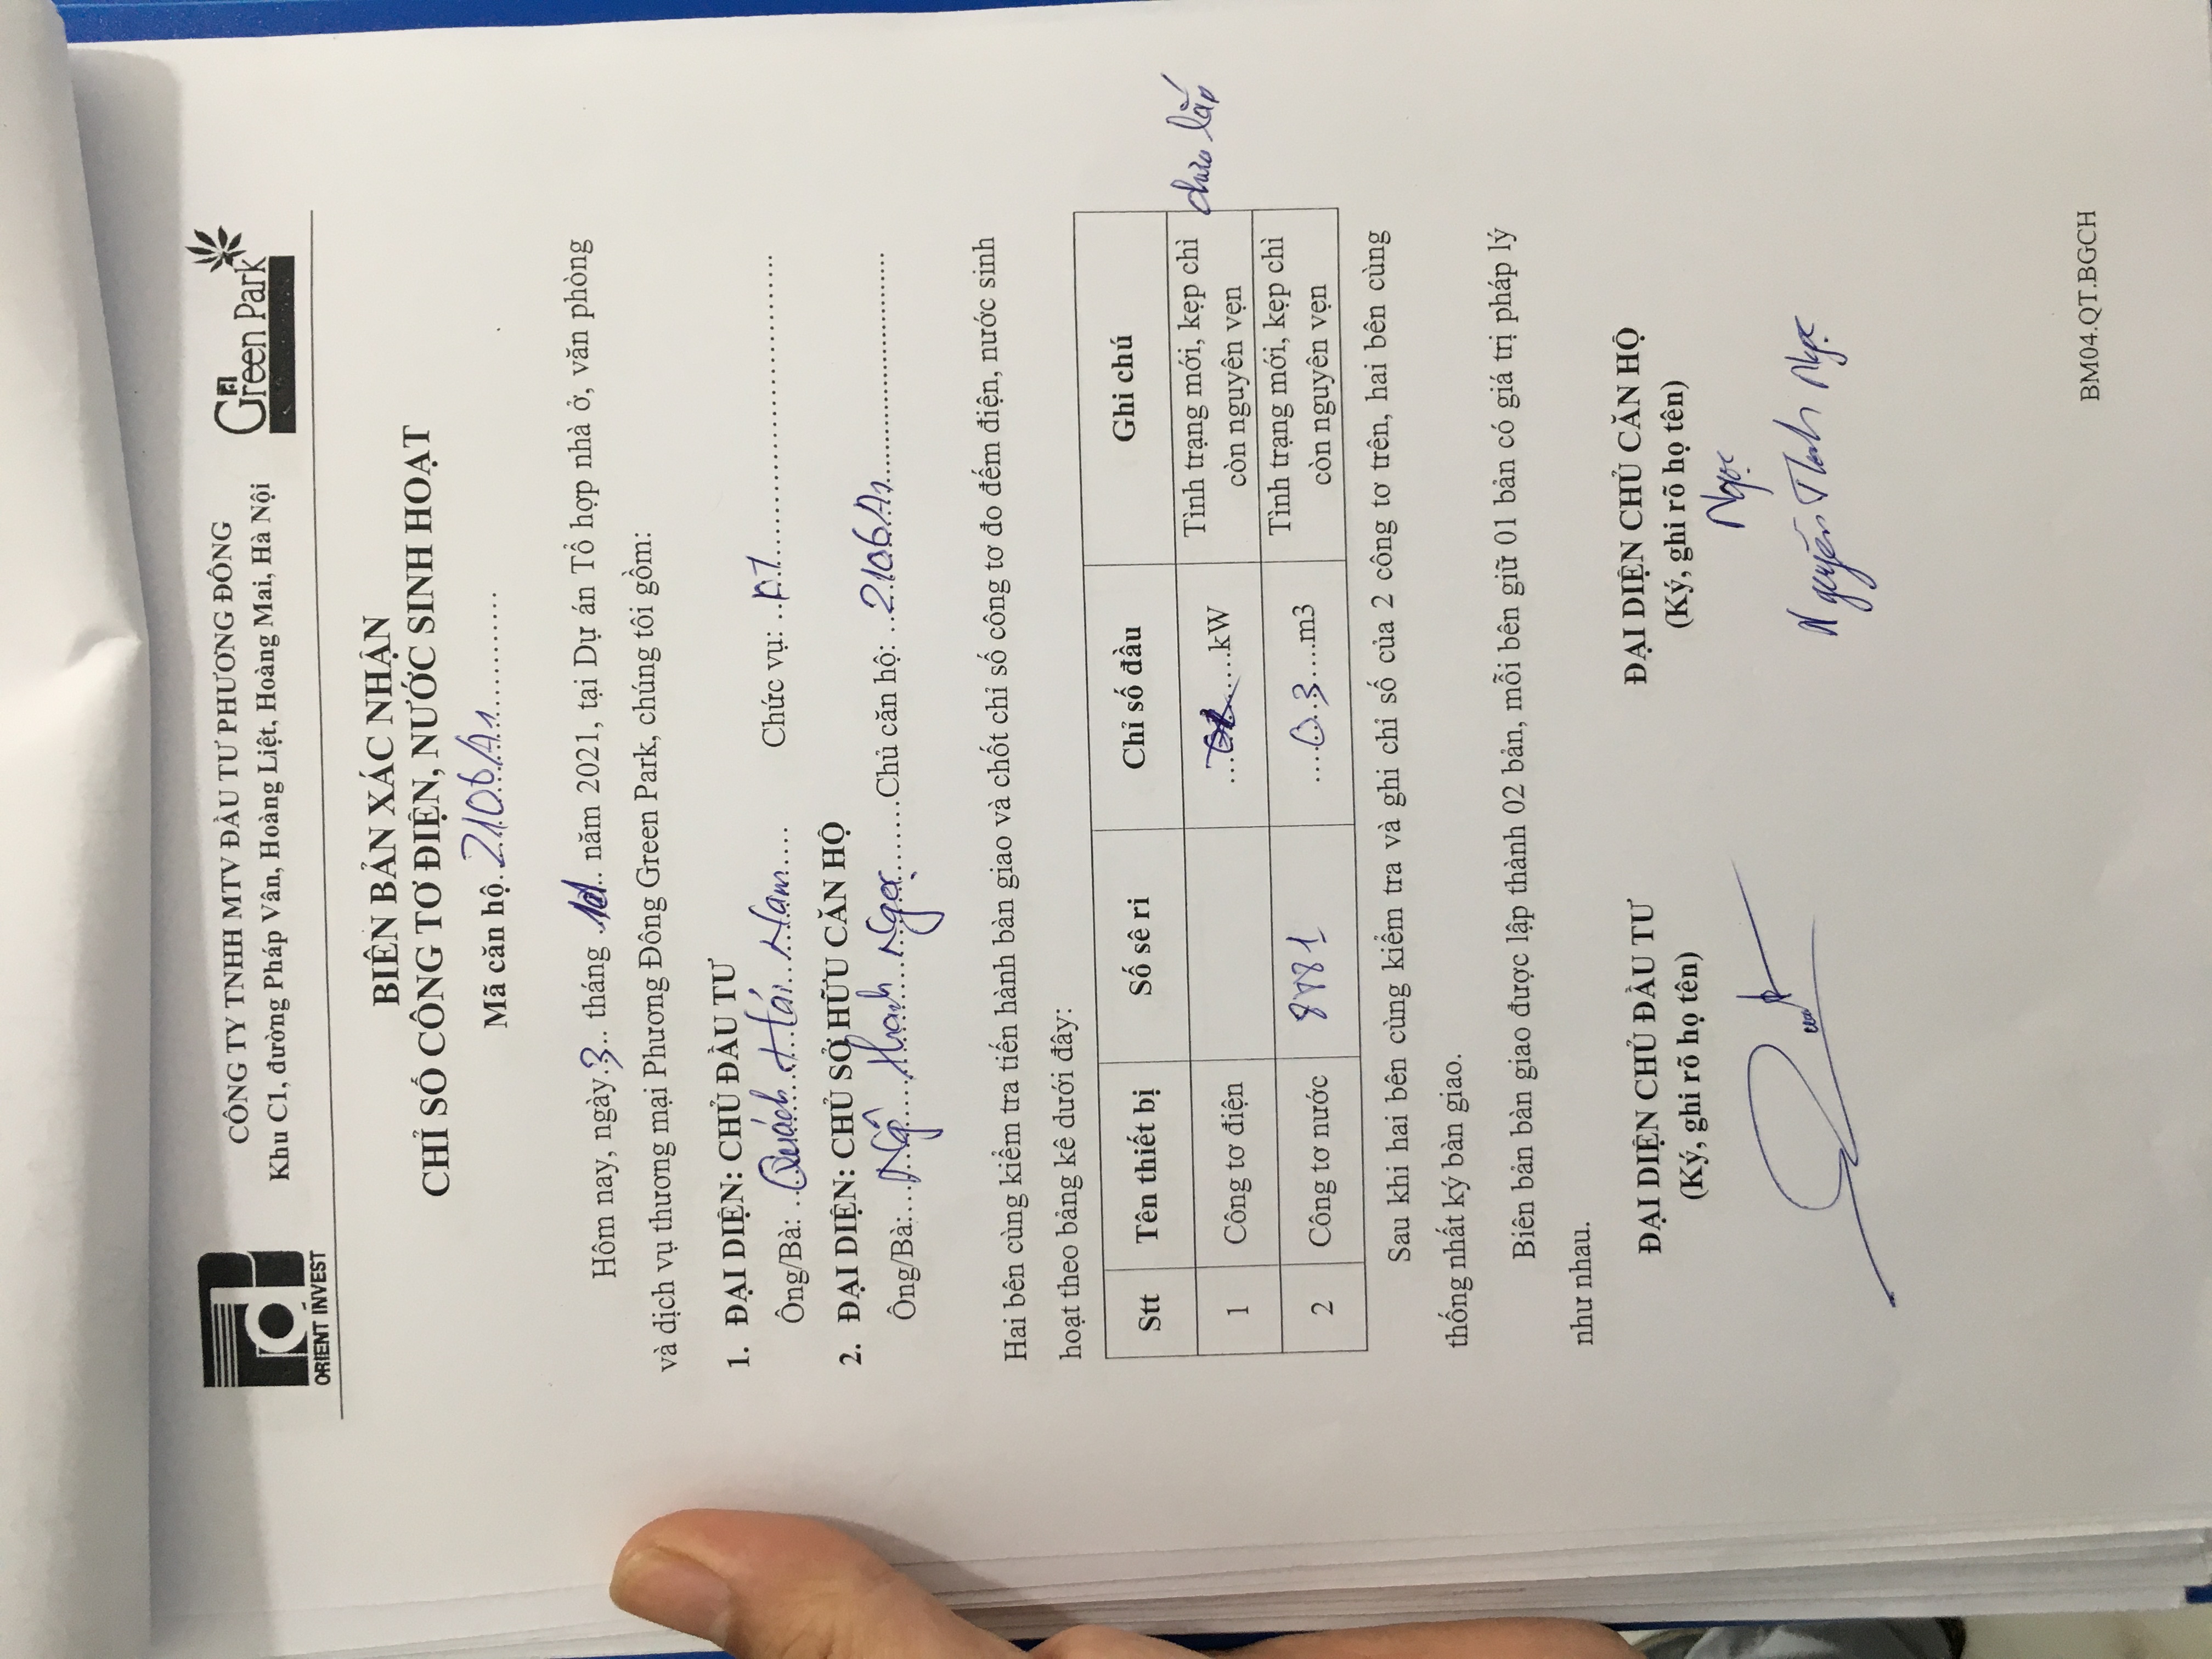 ORIENT INVEST
CÔNG TY TNHH MTV ĐẦU TƯ PHƯƠNG ĐÔNG
Khu C1, đường Pháp Vân, Hoàng Liệt, Hoàng Mai, Hà Nội
Green Park
BIÊN BẢN XÁC NHẬN
CHỈ SỐ CÔNG TƠ ĐIỆN, NƯỚC SINH HOẠT
Mã căn hộ. 2106A1
Hôm nay, ngày 3 tháng năm 2021, tại Dự án Tổ hợp nhà ở, văn phòng
và dịch vụ thương mại Phương Đông Green Park, chúng tôi gồm:
1. ĐẠI DIỆN: CHỦ ĐẦU TƯ
Ông/Bà: Quách Hải Nam Chức vụ:
2. ĐẠI DIỆN: CHỦ SỞ HỮU CĂN HỘ
Ông/Bà: Ngô Thanh Ngọc Chủ căn hộ: 2106A1
Hai bên cùng kiểm tra tiến hành bàn giao và chốt chỉ số công tơ đo đếm điện, nước sinh
hoạt theo bảng kê dưới đây:
Stt Tên thiết bị Số sê ri Chỉ số đầu Ghi chú
1 Công tơ điện kW Tình trạng mới, kẹp chì còn nguyên vẹn chưa lắp
2 Công tơ nước 8881 03 m3 Tình trạng mới, kẹp chì còn nguyên vẹn
Sau khi hai bên cùng kiểm tra và ghi chỉ số của 2 công tơ trên, hai bên cùng
thống nhất ký bàn giao.
Biên bản bàn giao được lập thành 02 bản, mỗi bên giữ 01 bản có giá trị pháp lý
như nhau.
ĐẠI DIỆN CHỦ ĐẦU TƯ
(Ký, ghi rõ họ tên)
ĐẠI DIỆN CHỦ CĂN HỘ
(Ký, ghi rõ họ tên)
Ngọc
Nguyễn Thanh Ngọc
BM04.QT.BGCH